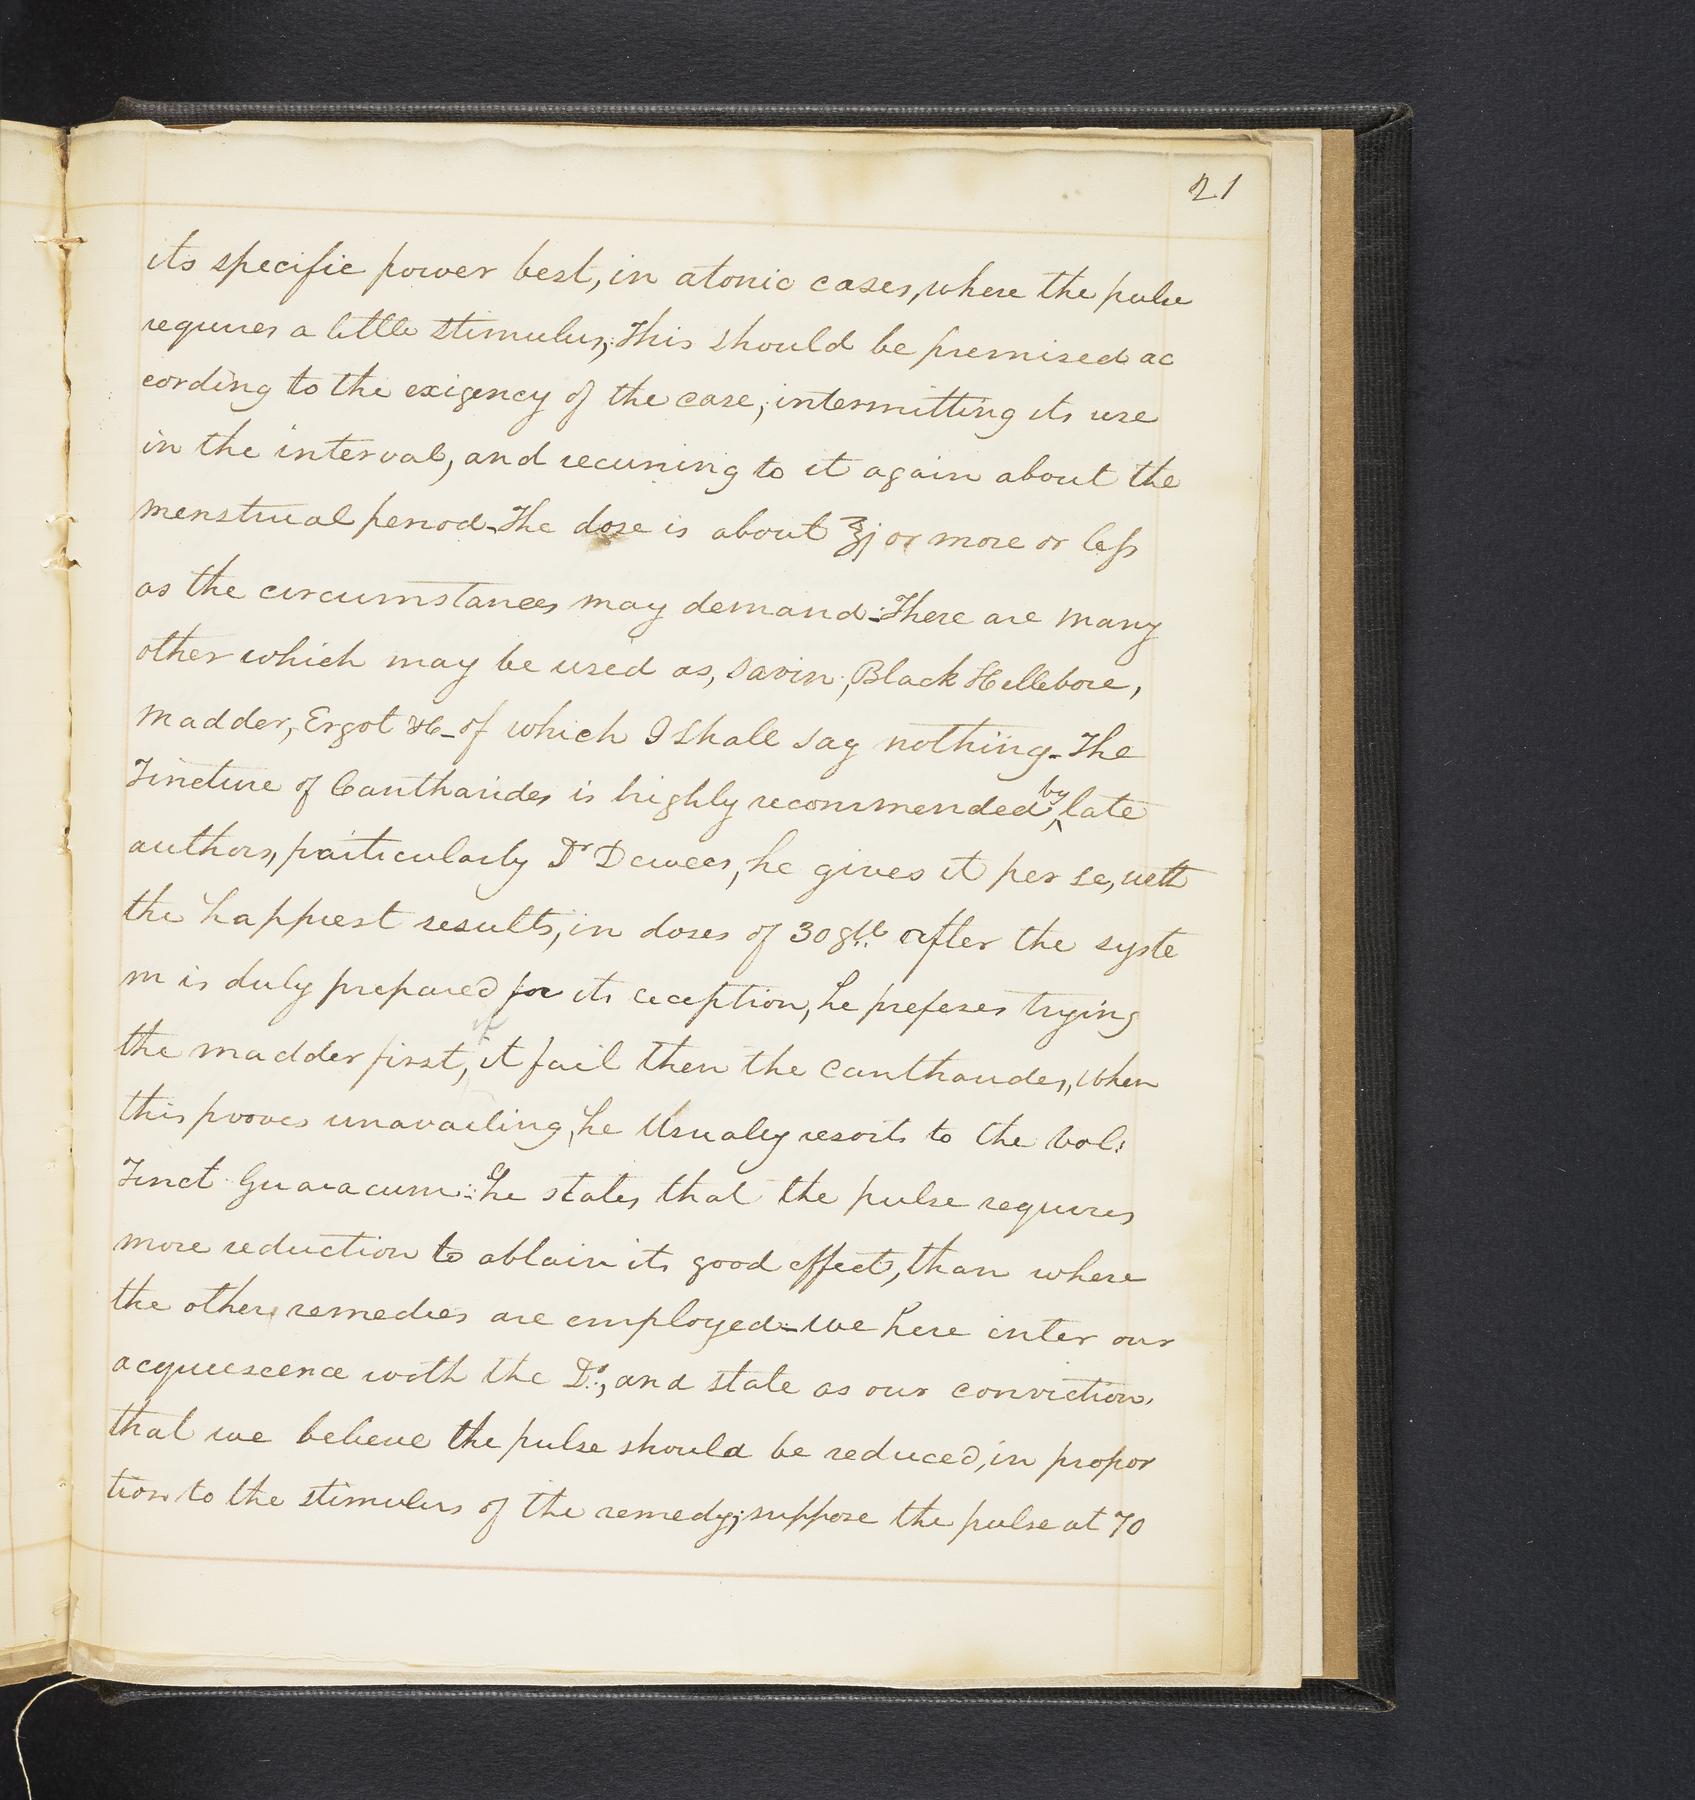 21
its specific power best, in atonic cases, where the pulse
requires a little stimulus, This should be premised ac
cording to the exigency of the case, intermitting its use
in the interval, and recuring to it again about the
menstrual period. The dose is about ʒj or more or less
as the circumstances may demand. There are many
other which may be used as, Savin, Black Hellebore,
Madder, Ergot &c - of which I shall say nothing. The
Tincture of Cantharides is highly recommended by late
authors, particularly Dr Dewees, he gives it per se, with
the happiest results, in doses of 30 gtt. After the syste
m is duly prepared for its reception, he preferes trying
the madder first, if it fail then the cantharides, when
this proves unavailing, he Usualey resorts to the Vol:
Tinct Guaiacum: he states that the pulse requires
more reduction to obtain its good effect, than where
the others remedies are employed - we here inter our
acquiescence with the Dr., and state as our conviction,
that we believe the pulse should be reduced, in propor
tion to the stimulus of the remedy; suppose the pulse at 70